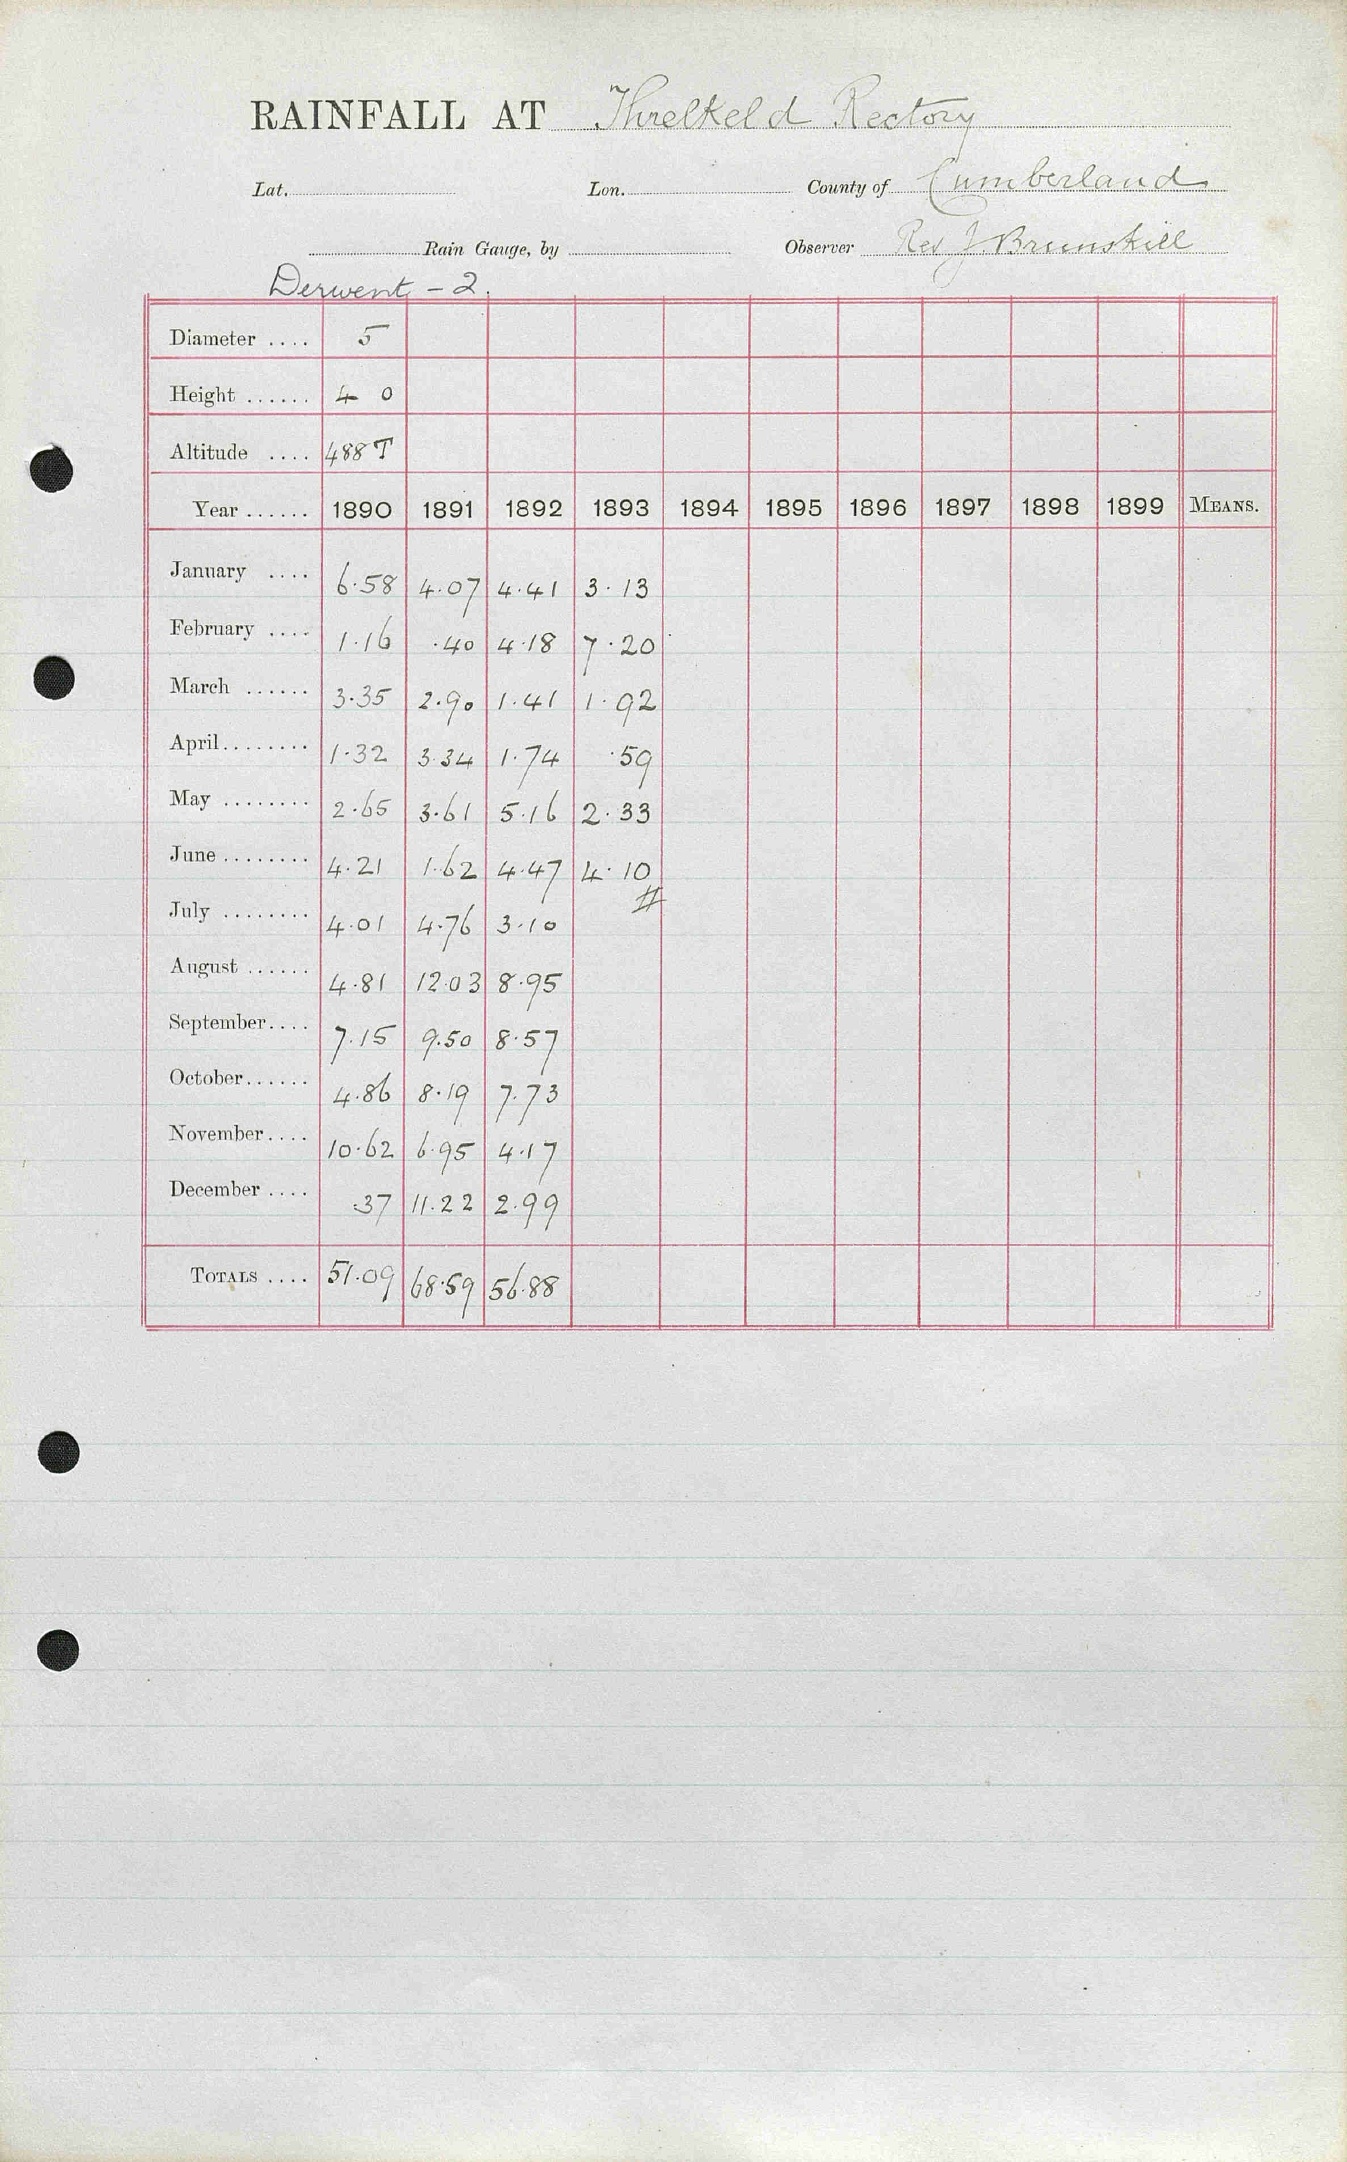 RAINFALL AT Threlkeld Rectory
Lat. Lon. County of Cumberland
Rain Gauge, by Observer Rev J. Brunskill
Derwent - 2.
Diameter .... 5
Height ...... 4 0
Altitude .... 488 T
Year ...... 1890 1891 1892 1893 1894 1895 1896 1897 1898 1899 MEANS.
January .... 6.58 4.07 4.41 3.13
February .... 1.16 .40 4.18 7.20
March ...... 3.35 2.90 1.41 1.92
April ........ 1.32 3.34 1.74 .59
May ........ 2.65 3.61 5.16 2.33
June ........ 4.21 1.62 4.47 4.10
#
July ........ 4.01 4.76 3.10
August ...... 4.81 12.03 8.95
September.... 7.15 9.50 8.57
October...... 4.86 8.19 7.73
November.... 10.62 6.95 4.17
December .... .37 11.22 2.99
TOTALS .... 51.09 68.59 56.88